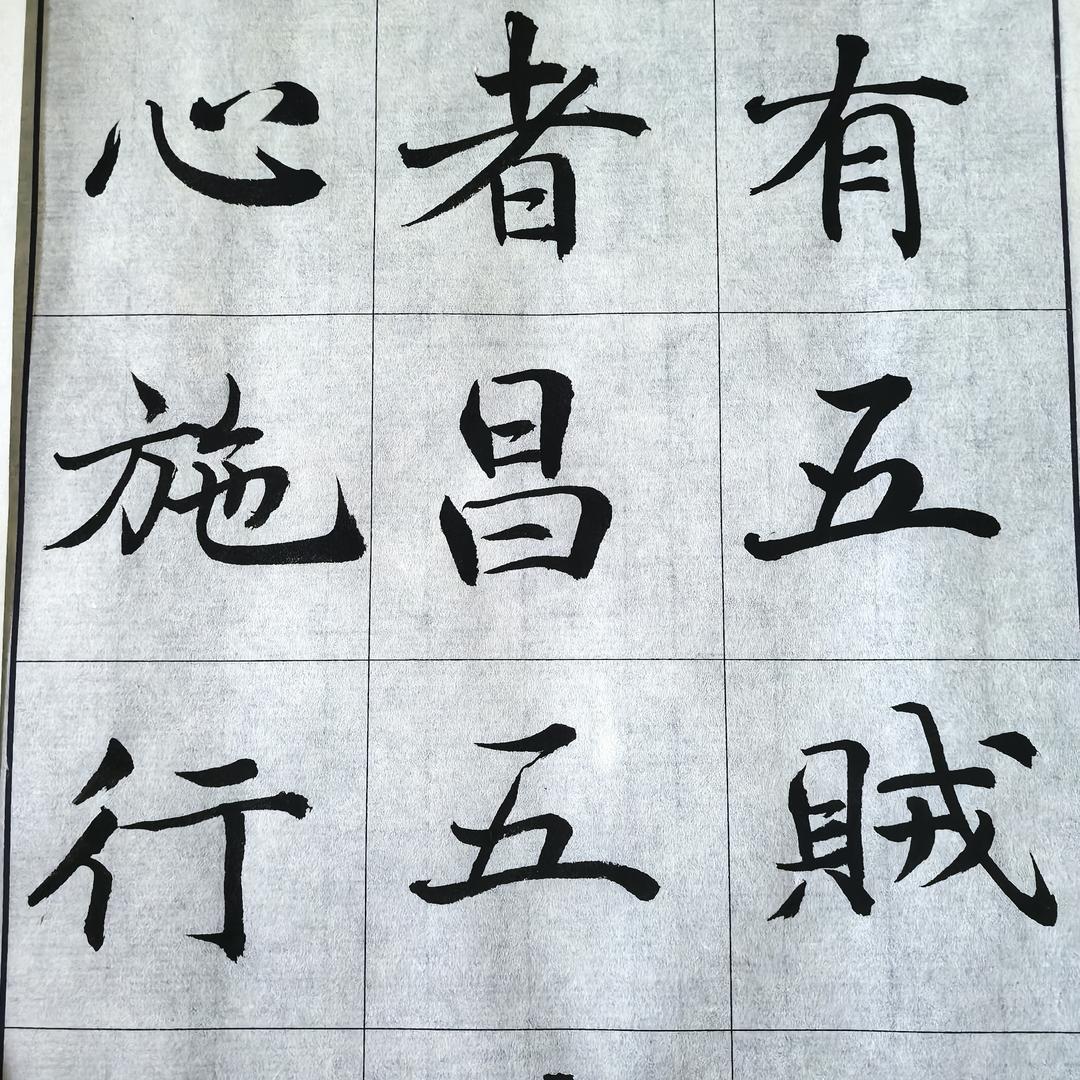 有五賊
者昌五
心施行